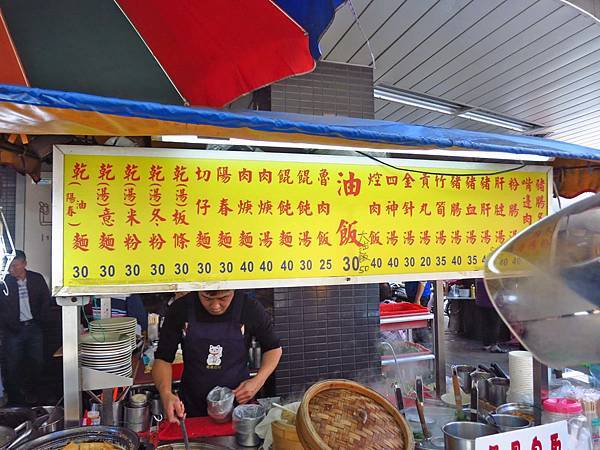 乾(陽春)油麵 30
乾(湯)意麵 30
乾(湯)米粉 30
乾(湯)冬粉 30
乾(湯)板條 30
切仔麵 30
陽春麵 30
肉羹麵 40
肉羹湯 40
餛飩湯 40
餛飩麵 30
魯肉飯 25
油飯 30
大 50
焢肉飯 40
四神湯 40
金針湯 30
貢丸湯 20
竹筍湯 35
豬腸湯 40
豬血湯 35
豬肝湯 40
肝腱湯
粉腸湯